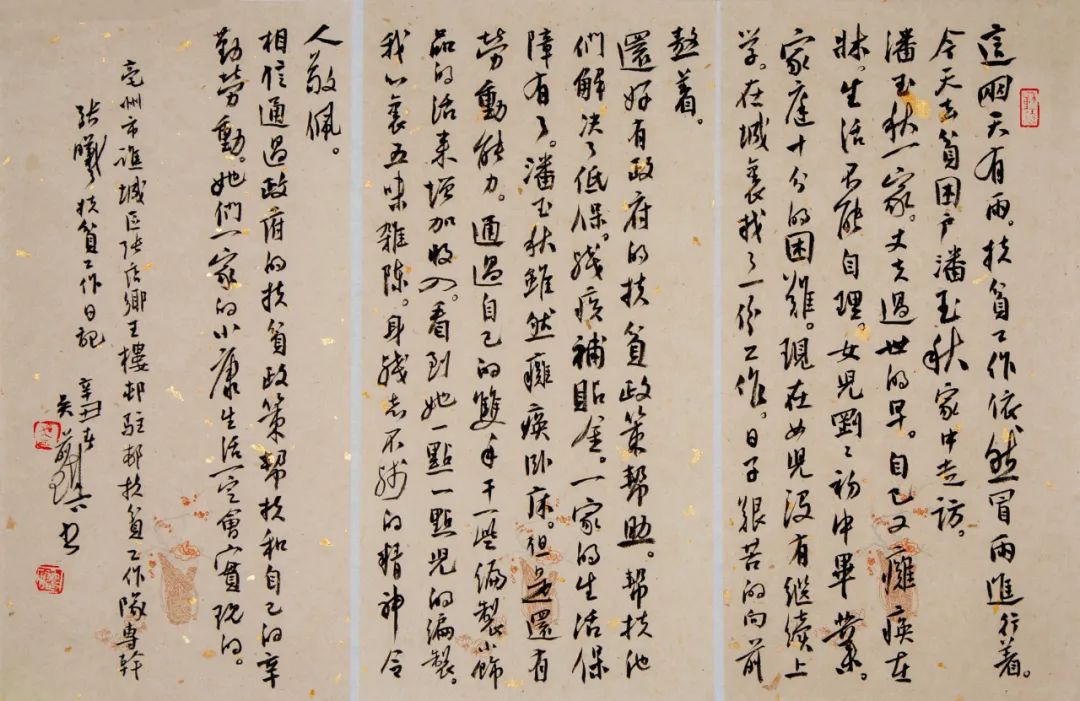 這兩天有雨。扶貧工作依然冒雨進行着。
今天去貧困户潘玉秋家中走訪。
潘玉秋一家。丈夫過世的早。自己又癱瘓在
牀。生活不能自理。女兒劉劉初中畢業。
家庭十分的困難。現在女兒没有繼續上
学。在城裏找了一份工作。日子艱苦的向前
熬着。
還好有政府的扶貧政策幫助。幫扶他
們解决了低保。残疾補貼金。一家的生活保
障有了。潘玉秋雖然癱瘓卧床。但是還有
勞動能力。通過自己的雙手干一些編製小飾
品的活来增加收入。看到她一點一點兒的編製。
我心裏五味雜陳。身残志不残的精神令
人敬佩。
相信通過政府的扶貧政策幫扶和自己的辛
勤勞動。她們一家的小康生活一定會實現的。
亳州市譙城區張店鄉王樓邨駐邨扶貧工作隊專幹
張曦扶貧工作日記
辛丑春
書